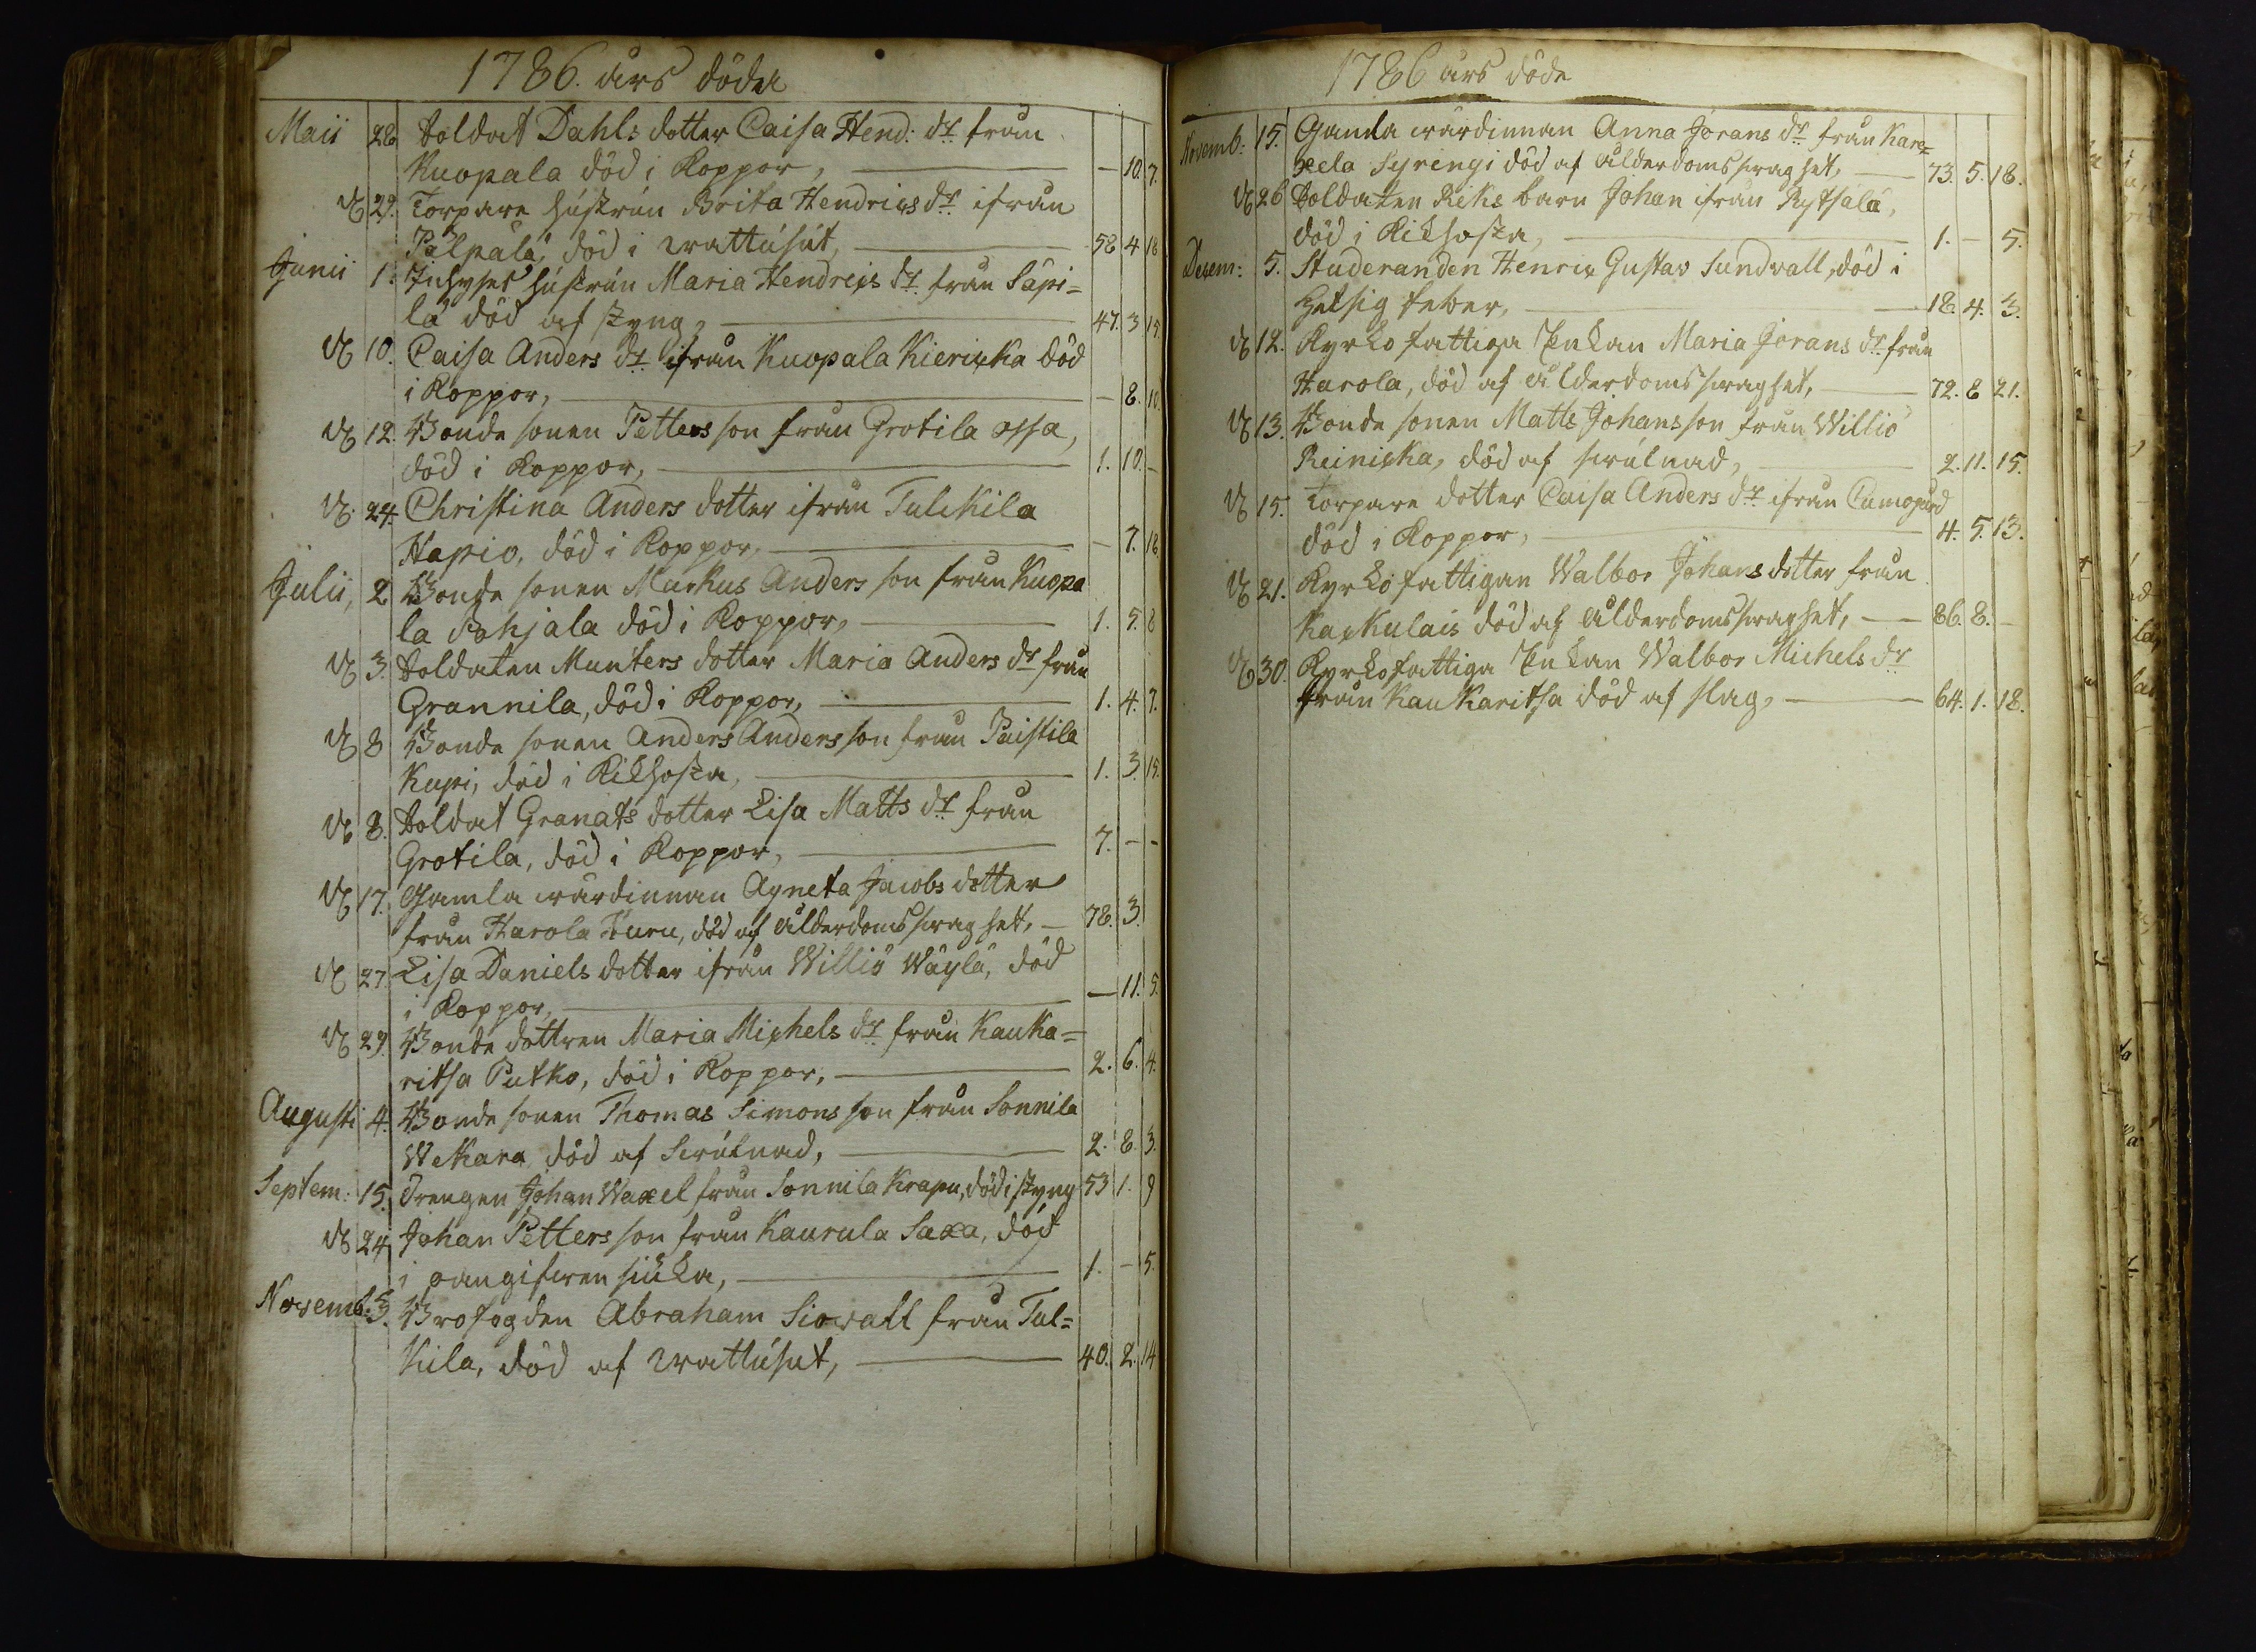 1786. års döda
Maii 28. Soldat Dahls dotter Caisa Hend: dr från
Kuopala död i Koppor, — 10. 7.
29. Torpare hústrún Brita Hendrics dr ifrån
Pälpälä, död i wattúsút, 58 4 18
Junii 1. Inhyses hústrún Maria Hendrics dr från Säpi=
lä död af styng, 47. 3 15
10. Caisa Anders dr ifrån Kuopala Kiericka död
i Koppor, — 8. 10.
12. Bonde sonen Petterson från Grotila Ossa,
död i Koppor, 1. 10. —
24. Christina Anders dotter ifrån Tulckila
Hapio, död i Koppor, — 7. 18
Julii, 2 Bonde sonen Markus Anders son från Kuopa
la Pohjala död i Koppor, 1. 5. 8
3. Soldaten Munters dotter Maria Anders dr från
Grannila, död i Koppor, 1. 4. 7.
8 Bonde sonen Anders Anders son från Paistila
Kupi, död i Kikhosta, 1. 3. 15.
8. Soldat Granats dotter Lisa Matts dr från
Grotila, död i Koppor, 7. — —
17. Gamla wärdinnan Agneta Jacobs dotter
från Harola Turu, död af ålderdoms swaghet, — 78. 3.
27. Lisa Daniels dotter ifrån Williö Wäylä, död
i Koppor, — 11. 5.
29. Bonde dottren Maria Michels dr från Kauka=
ritsa Putko, död i Koppor, 2. 6. 4.
Augusti 4. Bonde sonen Thomas Simons son från Sonnila
Wekara död af Swúlnad, 2. 8. 3.
Septem: 15. Drengen Johan Waxel från Sonnila Krapu, död i styng 53 1. 9
24 Johan Petters son från Kaurula Saxa, död
i siúka, 1. — 5.
Novemb: 3. Brofogden Abraham Siowall från Tul=
kila, död af wattúsút, 40. 2. 14
1786 års döde
Novemb: 15. Gamla wärdinnan Anna Jörans dr från Kare=
xela Syrengi död af ålderdoms swaghet, 73. 5. 18.
26 Soldaten Reks barn Johan ifrån Rytsälä,
död i Kikhosta, 1. — 5.
Decem: 5. Studeranden Henric Gustav Sundvall, död i
Hetsig feber, 18. 4. 3.
12. Kyrko fattiga Enkan Maria Jörans dr från
Harola, död af ålderdoms swaghet, 72. 8 21.
13. Bonde sonen Matts Johans son från Williö
Reinicka, död af swúlnad, 2. 11. 15.
15. Torpare dotter Caisa Anders dr ifrån Cumogård
död i Koppor, 4. 5. 13.
21. Kyrko fattigan Walbor Johans dotter från
Kackulais död af ålderdoms swaghet, — 86. 8. —
30. Kyrkofattiga Enkan Walbor Michels dr
från Kaukaritsa död af slag, 64. 1. 18.